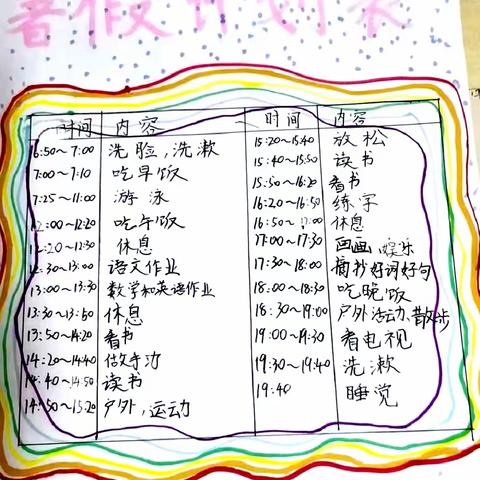 暑假计划表
时间 内容
6:50~7:00 洗脸,洗漱
7:00~7:10 吃早饭
7:25~11:00 游泳
12:00~12:20 吃午饭
12:20~12:30 休息
12:30~13:00 语文作业
13:00~13:30 数学和英语作业
13:30~13:50 休息
13:50~14:20 看书
14:20~14:40 做手工
14:40~14:50 读书
14:50~15:20 户外,运动
时间 内容
15:20~15:40 放松
15:40~15:50 读书
15:50~16:20 看书
16:20~16:50 练字
16:50~17:00 休息
17:00~17:30 画画 娱乐
17:30~18:00 摘抄好词好句
18:00~18:30 吃晚饭
18:30~19:00 户外活动,散步
19:00~19:30 看电视
19:30~19:40 洗漱
19:40 睡觉